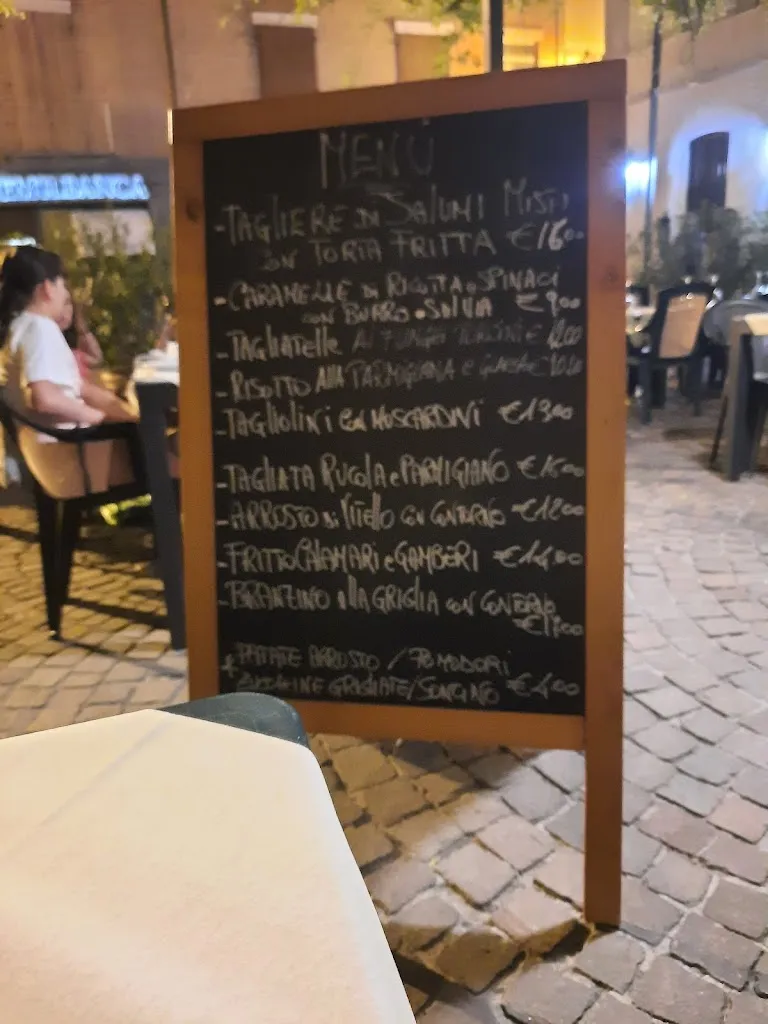 MENÙ
-TAGLIERE DI SALUMI MISTI
CON TORTA FRITTA €16,00
-CARAMELLE DI RICOTTA e SPINACI
con BURRO e SALVIA €9,00
-TAGLIATELLE AI FUNGHI PORCINI €
-RISOTTO ALLA PARMIGIANA e
-TAGLIOLINI CON MOSCARDINI €13,00
-TAGLIATA RUCOLA e PARMIGIANO €15,00
-ARROSTO DI VITELLO CON CONTORNO €12,00
-FRITTO CALAMARI e GAMBERI €14,00
-BRANZINO ALLA GRIGLIA CON CONTORNO
+ PATATE ARROSTO / POMODORI
GRIGLIATE/SONCINO €4,00